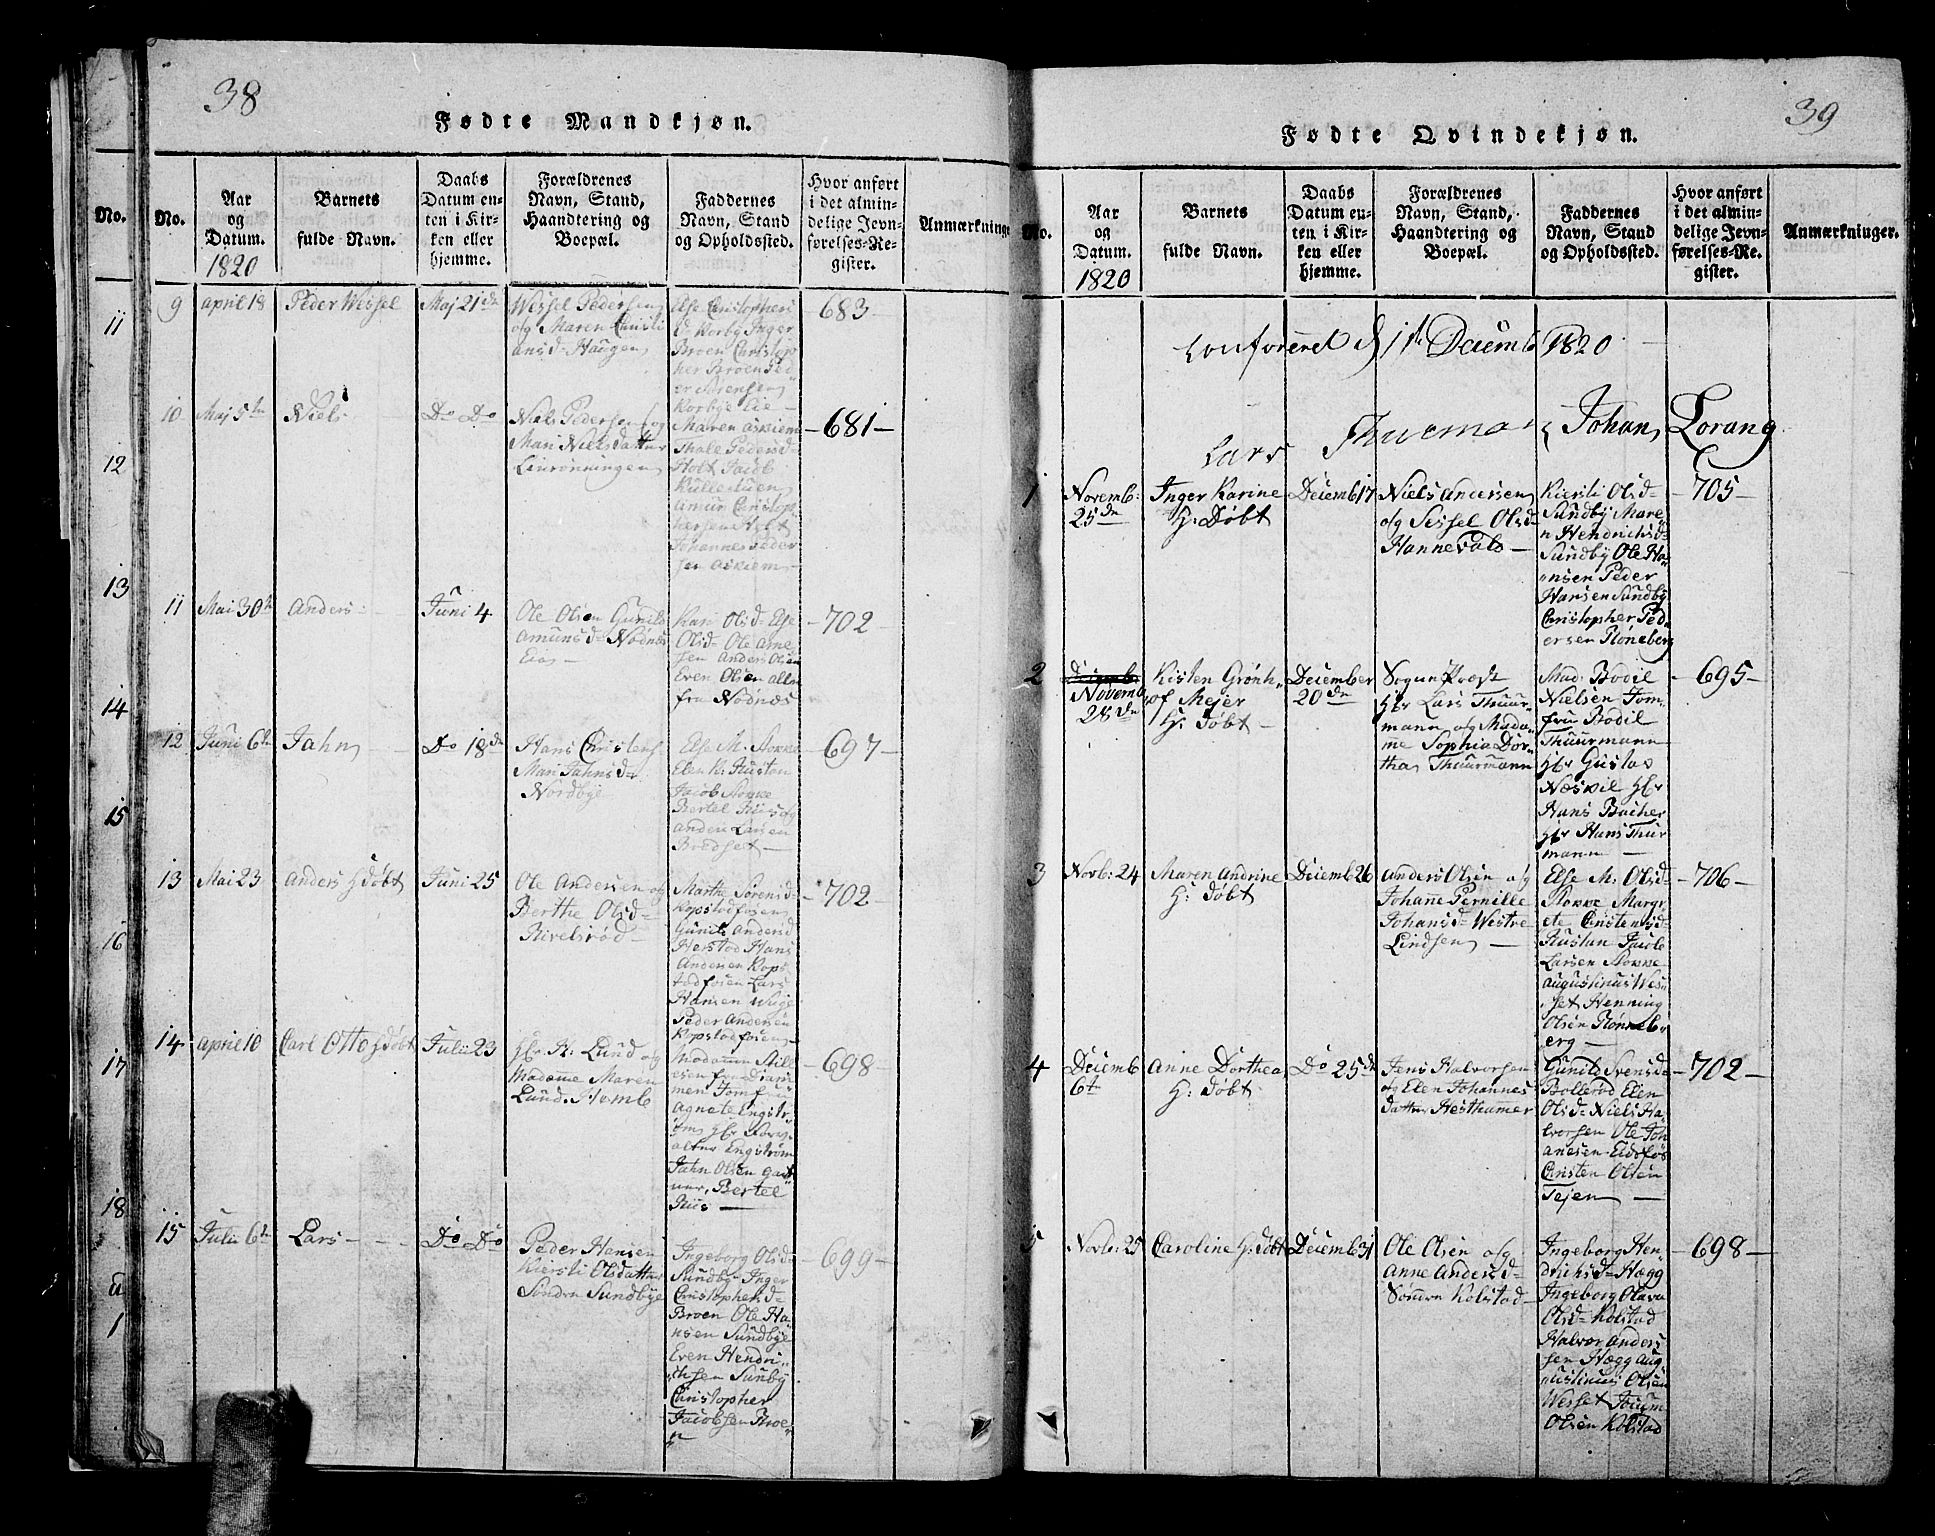 38
Fødte Mandkjøn.
No.
Aar
og
Datum.
1820
Barnets
fulde Navn.
Daabs
Datum en-
ten i Kir-
ken eller
hjemme.
Forældrenes
Navn, Stand,
Haandtering og
Boepæl.
Faddernes
Navn, Stand
og Opholdssted.
Hvor anført
i det almin-
delige Jevn-
førelses-Re-
gister.
Anmærkninge
No.
11
12
13
14
15
16
17
18
1
9
april 18
Peder Wessel
Maj 21 de
Wessel Pedersen
o/g Maren Christi
ansd= Haugen
Else Christophers
d= Korby Inger
Broen Christop
her Broen Ped
er Sørensen
Korbye Eie -
683 -
10
Maj 5 te
Niels
Do Do
Niels Pedersen o/g
Mari Nielsdatter
Linrønningen
Maren askiem
Thale Pedersd=
Holt Jacob
Kulle tuen
amun Christop
hersen Holt
Johannes Peder
sen askiem -
- 681 -
11
Mai 30 te
Anders
Juni 4
Ole Olsen Gunild
Amunsd= Nødnes
Eie -
Kari Olsd= Else
Olsd= Ole Arne
sen Anders Olsen
Even Olsen alle
fra Nødnæs
- 702 -
12
Juni 6 te
Jahn
Do 18 de
Hans Christens
Mari Jahnsd=
Nordbye
Else M. Stokke
Elen K. Rustan
Jacob Stokke
Bertel Riis o/g
anders Larsen
Bredset -
- 697 -
13
Mai 23
anders H døbt
Juni 25
Ole Andersen o/g
Berthe Olsd=
Rivelsrød -
Marthe Sørensd=
Kopstadfosen
Gunild Andersd
Herstad Hans
Andersen Kops
tadfosen Lars
Hansen Wiige
Peder Andersen
Kopstadfosen
- 702 -
14
april 10
Carl Otto H døbt
Julii 23
Hr N: Lund o/g
Madamme Maren
Lund. Homb
Madamm Niel
sen fra Dram
men Jomfru
Agnete Engstr
øm Hr Forv
alter Engstrøm
Jahn Olsen gart
ner, Bertel
Riis -
- 698 -
15
Julii 6 te
Lars -
Do Do
Peder Hansen
Kiersti Olsdatter
Søndre Sundbye
Ingeborg Olsd=
Sundby Inger
Christophersd=
Broen Ole Ha
nsen Sundbye
Even Hendri
chsen Sunby
Christopher
Jacobsen Broe
n
- 699 -
39
Fødte Qvindekjøn.
No.
Aar
og
Datum.
1820
Barnets
fulde Navn.
Daabs
Datum en-
ten i Kir-
ken eller
hjemme.
Forældrenes
Navn, Stand,
Haandtering og
Boepæl.
Faddernes
Navn, Stand
og Opholdssted.
Hvor anført
i det almin-
delige Jevn-
førelses-Re-
gister.
Anmærkninger.
Confereret d 1 t Decemb 1820
Lars Thurman Johan Lorang
1
Novemb:
25 de
Inger Karine
H: Døbt
Decemb 17
Niels Andersen
o/g Sissel Olsd=
Hannevold -
Kiersti Olsd=
Sundby Mare
n Hendrichsd=
Sundby Ole Ha
nsen Peder
Hansen Sundby
Christopher Ped
ersen Rønneberg
- 705 -
2
Novemb
28 de
Kisten Grønh
of Mejer
H: Døbt -
December
20 de
SognePræst
Hr Lars Thuur-
mann o/g Mada
me Sophia Dor
thea Thuurmann
Mad: Bodil
Nielsen Jom
fru Bodil
Thuurmann
Hr Gustav
Næskil Hr
Hans Bacher
Hr Hans Thur
mann -
- 695 -
3
Novb: 24
Maren Andrine
H: Døbt
Decemb 26
Anders Olsen o/g
Johanne Pernille
Johansd= Westre
Lindsen -
Else M. Olsd=
Stokke Margr
ete Christensd=
Rustan Jacob
Larsen Stokke
augustinus Wes
set Henning
Olsen Rønneb
erg -
- 706 -
4
Decemb
6 t
Anne Dorthea
H: Døbt
Do 25 de
Jens Halvorsen
o/g Elen Johannes
datter Hesthamer
Gunild Svensd=
Bollerød Elen
Olsd= Niels Ha
lvorsen Ole Joh
anesen Eidsfos
Christen Olsen
Tejen -
- 702 -
5
Novb: 25
Caroline H: døbt
Decemb 31
Ole Olsen o/g
Anne Andersd=
Sømen Kolstad -
Ingeborg Hen
drichsd= Hægg
Ingeborg Olava
Olsd= Kolstad
Halvor Anders
sen Hægg Aug
ustinus Olsen
Wesset Joum
Olsen Kolstad
- 698 -